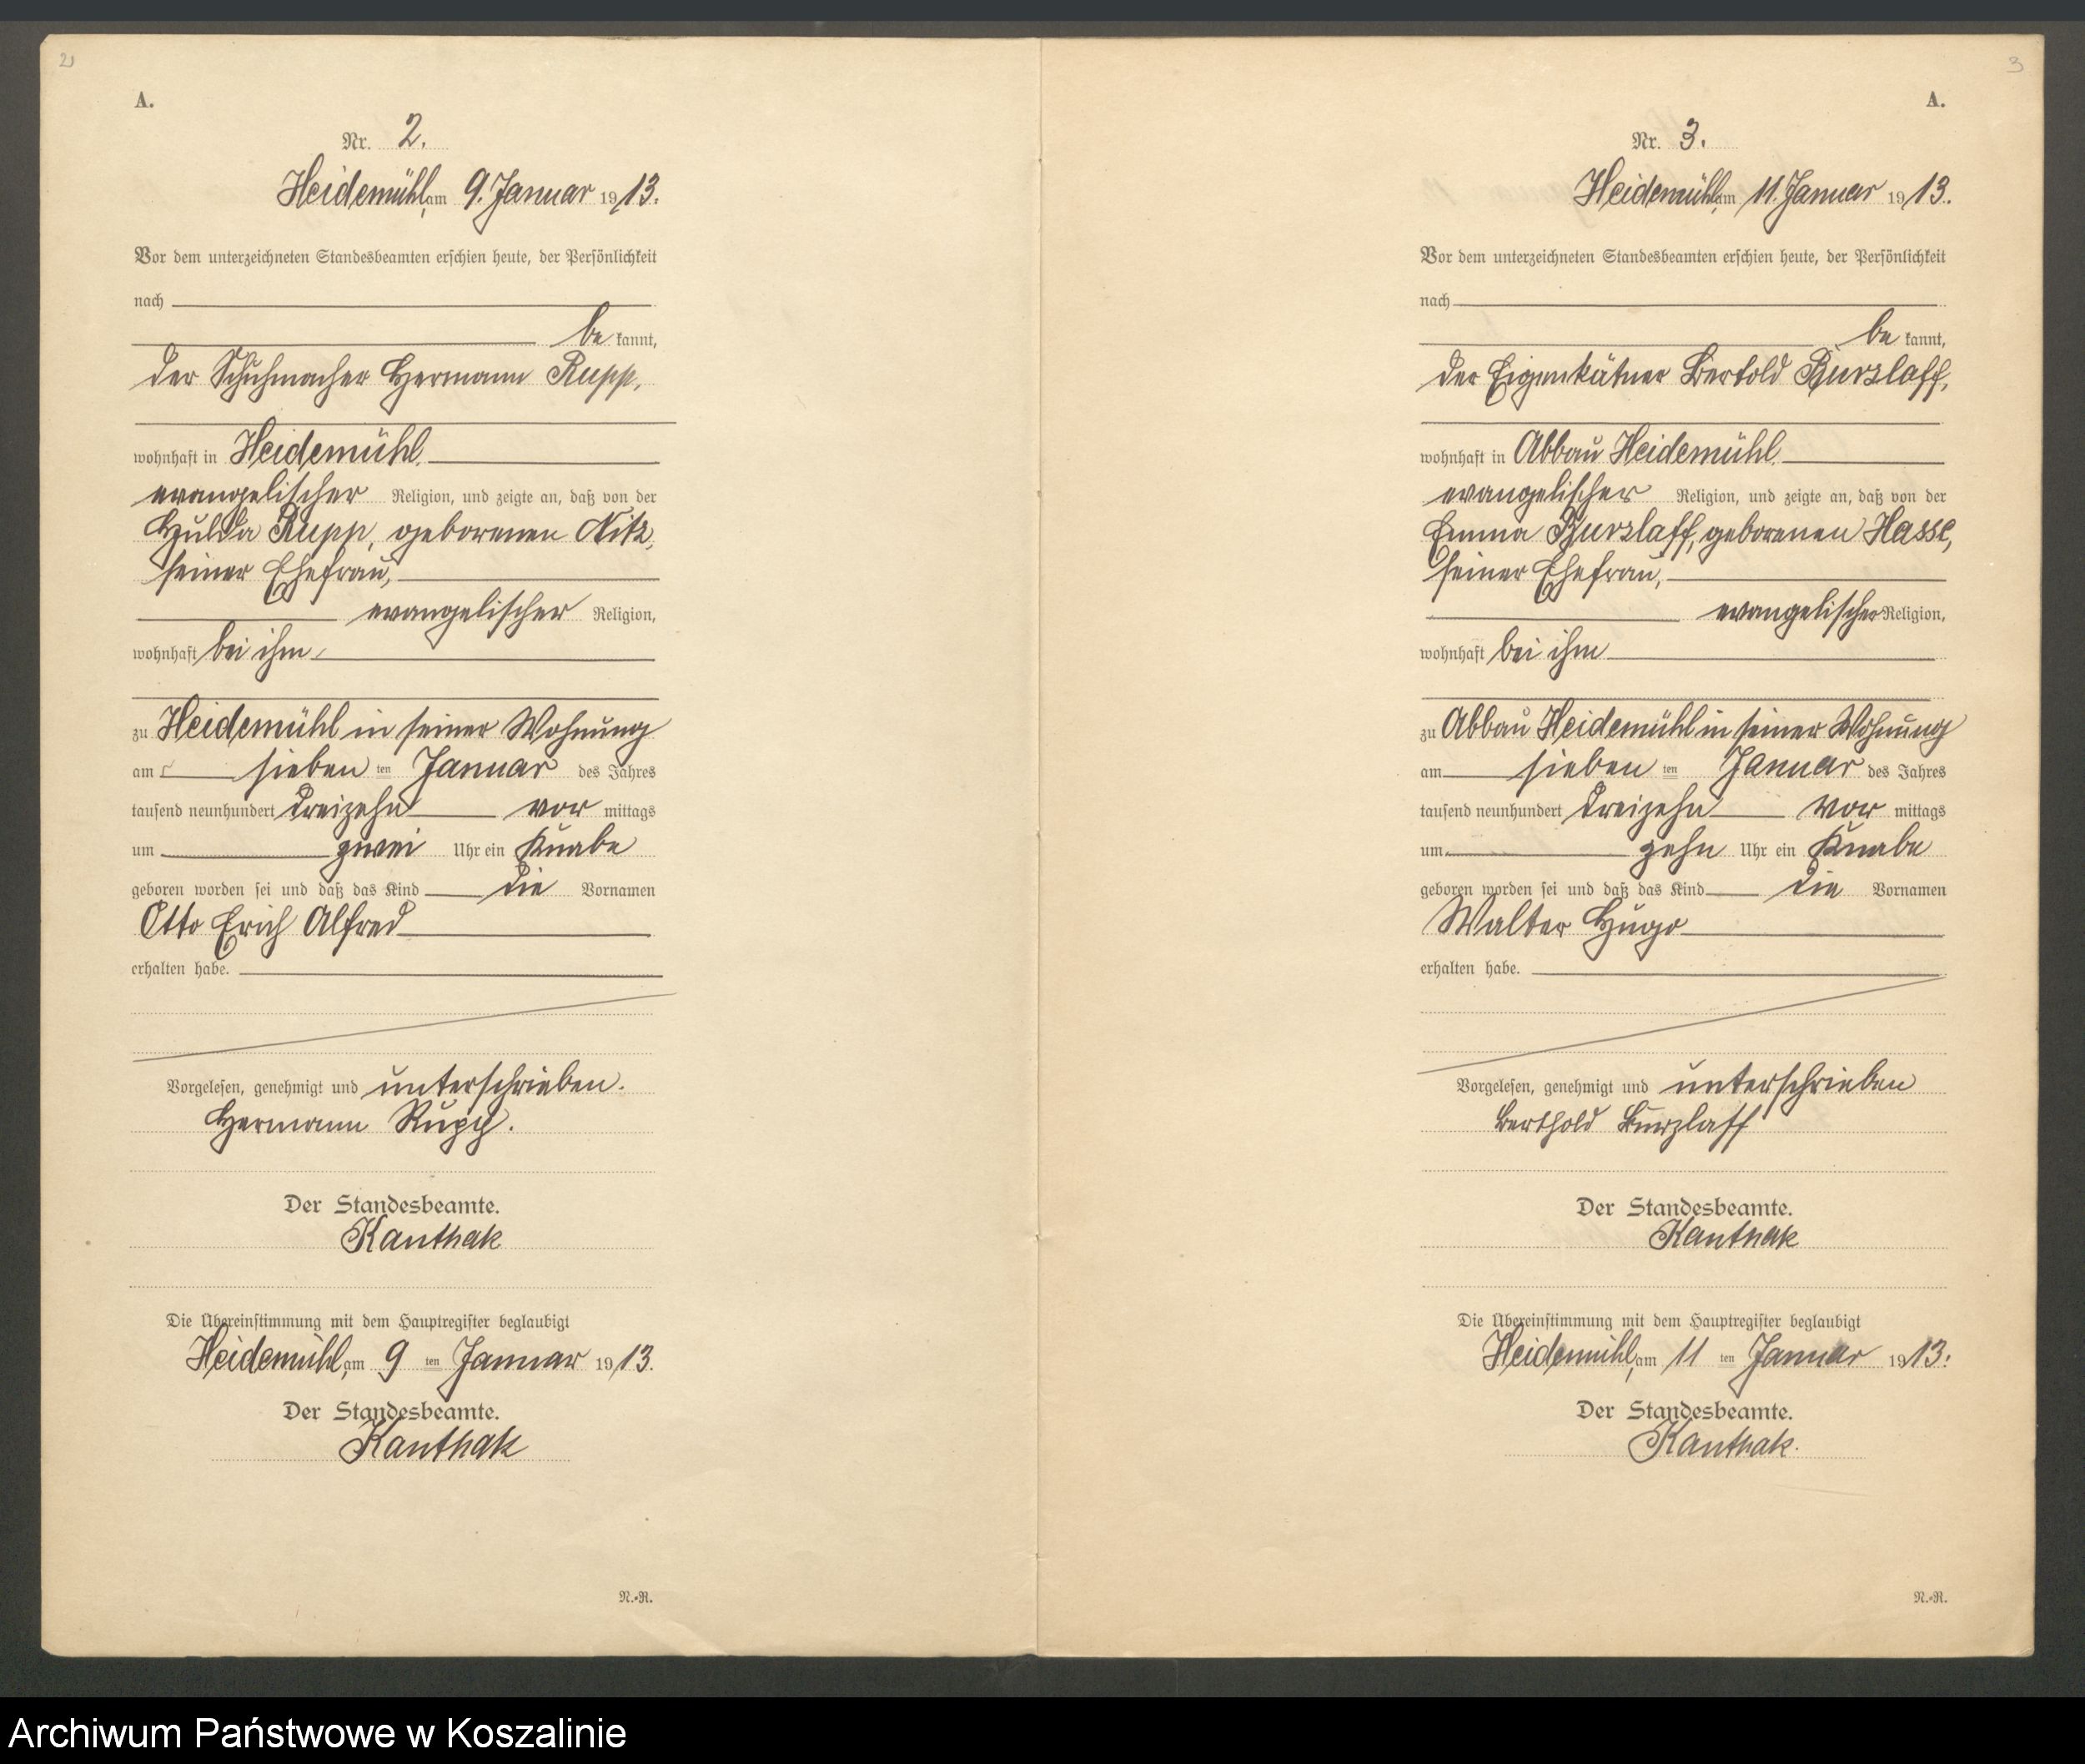 2
A.
Nr. 2.
Heidemühl, am 9. Januar 1913.
Vor dem unterzeichneten Standesbeamten erschien heute, der Persönlichkeit
nach
be kannt,
der Schuhmacher Hermann Rupp,
wohnhaft in Heidemühl,
evangelischer Religion, und zeigte an, daß von der
Hulda Rupp, geborenen Nitz,
seiner Ehefrau,
evangelischer Religion,
wohnhaft bei ihm
zu Heidemühl in seiner Wohnung
am sieben ten Januar des Jahres
tausend neunhundert dreizehn vor mittags
um zwei Uhr ein Knabe
geboren worden sei und daß das Kind die Vornamen
Otto Erich Alfred
erhalten habe.
Vorgelesen, genehmigt und unterschrieben.
Hermann Rupp.
Der Standesbeamte.
Kanthak
Die Übereinstimmung mit dem Hauptregister beglaubigt
Heidemühl, am 9 ten Januar 1913.
Der Standesbeamte.
Kanthak
N.-R.
3
A.
Nr. 3.
Heidemühl, am 11. Januar 1913.
Vor dem unterzeichneten Standesbeamten erschien heute, der Persönlichkeit
nach
be kannt,
der Eigenkätner Bertold Burzlaff,
wohnhaft in Abbau Heidemühl
evangelischer Religion, und zeigte an, daß von der
Emma Burzlaff, geborenen Hasse,
seiner Ehefrau,
evangelischer Religion,
wohnhaft bei ihm
zu Abbau Heidemühl in seiner Wohnung
am sieben ten Januar des Jahres
tausend neunhundert dreizehn vor mittags
um zehn Uhr ein Knabe
geboren worden sei und daß das Kind die Vornamen
Walter Hugo
erhalten habe.
Vorgelesen, genehmigt und unterschrieben
Berthold Burzlaff
Der Standesbeamte.
Kanthak
Die Übereinstimmung mit dem Hauptregister beglaubigt
Heidemühl, am 11 ten Januar 1913.
Der Standesbeamte.
Kanthak.
N.-R.
Archiwum Państwowe w Koszalinie